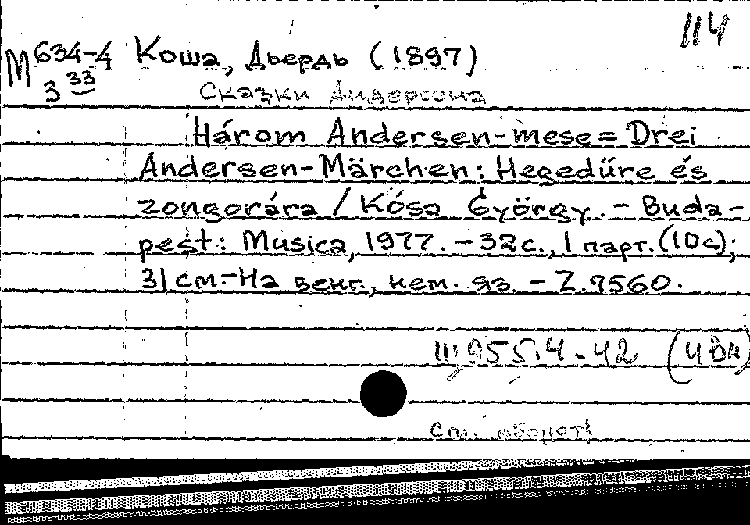 114
М 634-4 Коша, Дьердь (1897)
3 33
Сказки Андерсена
Három Andersen-mese = Drei
Andersen-Märchen: Hegedűre és
zongorára / Kósa György. - Buda-
pest: Musica, 1977. - 32с., 1 парт. (10с);
31 см. - На венг., нем. яз. - Z.7560.
Ш955.4-42
См. оборот